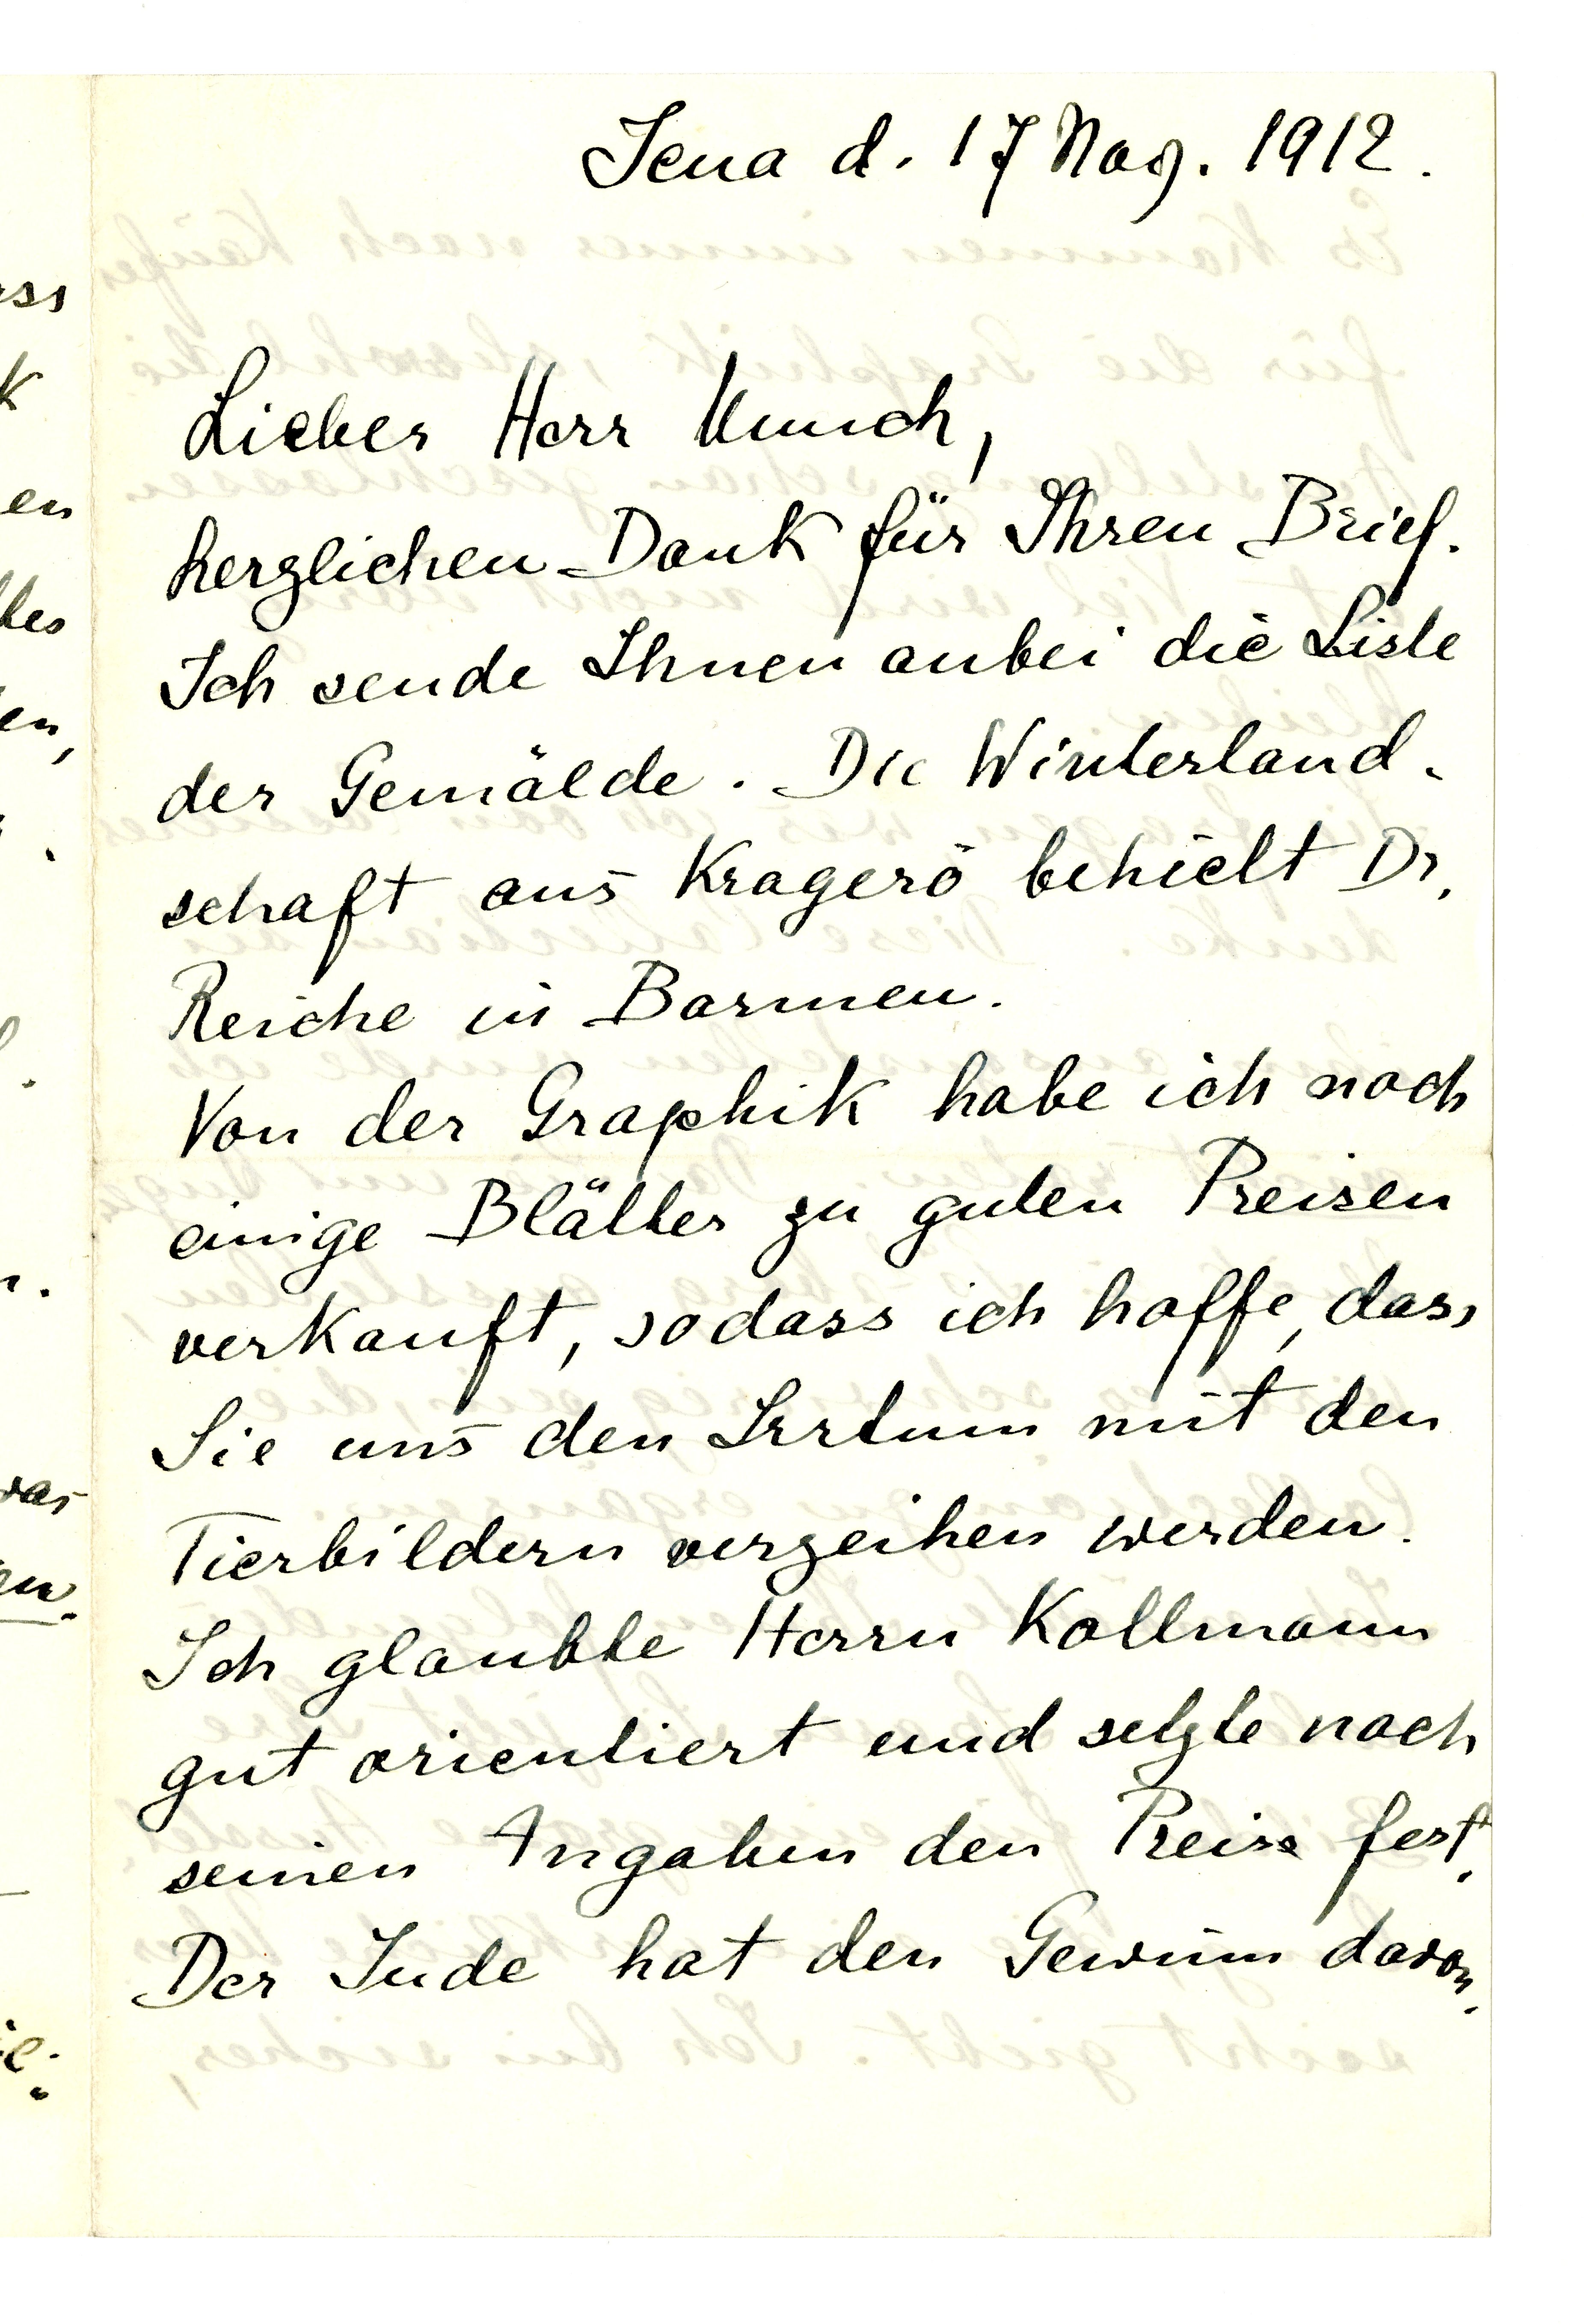 Jena d. 17 Nov. 1912.
Lieber Herr Munch,
herzlichen Dank für Ihren Brief.
Ich sende Ihnen anbei die Liste
der Gemälde. Die Winterland-
schaft aus Kragerö behielt Dr.
Reiche in Barmen.
Von der Graphik habe ich noch
einige Blätter zu guten Preisen
verkauft, sodass ich hoffe, dass
Sie uns den Irrtum mit den
Tierbildern verzeihen werden.
Ich glaubte Herrn Kollmann
gut orientiert und setzte nach
seinen Angaben den Preis fest.
Der Jude hat den Gewinn davon.